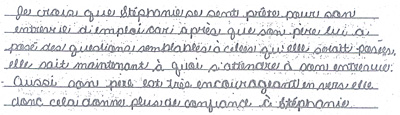 Je crois que Stéphanie se sente prête pour son
entrevue d'emploi car après que son père lui a
posé des questions semblables à celles qu'elle serait posées,
elle sait maintenant à quoi s'attendre à son entrevue.
Aussi son père est très encourageand envers elle
donc cela donne plus de confiance à Stéphanie